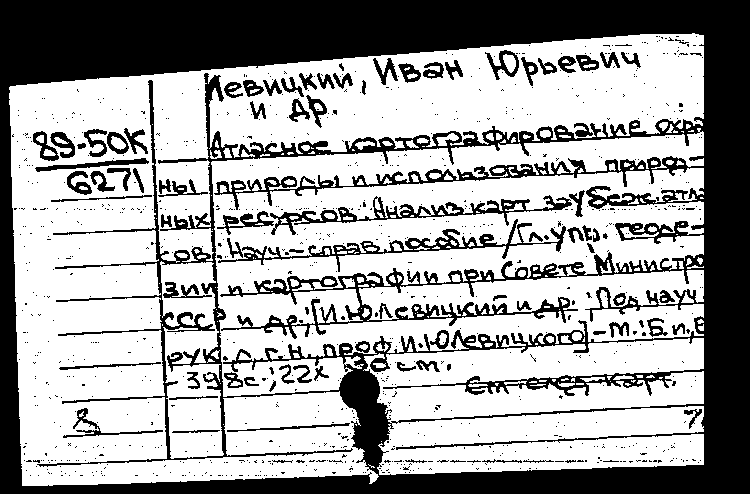 Левицкий, Иван Юрьевич
и др.
89-50К
6271
Атласное картографирование охра
ны природы и использования природ-
ных ресурсов: Анализ карт зарубеж. атла
сов: Науч.-справ. пособие / Гл. упр. геоде-
зии и картографии при Совете Министро
СССР и др.; [И.Ю. Левицкий и др.; Под науч.
рук. д. г. н., проф. И.Ю. Левицкого]. - М.: Б. и.,
- 398 с.; 22х30 см.
См след. карт.